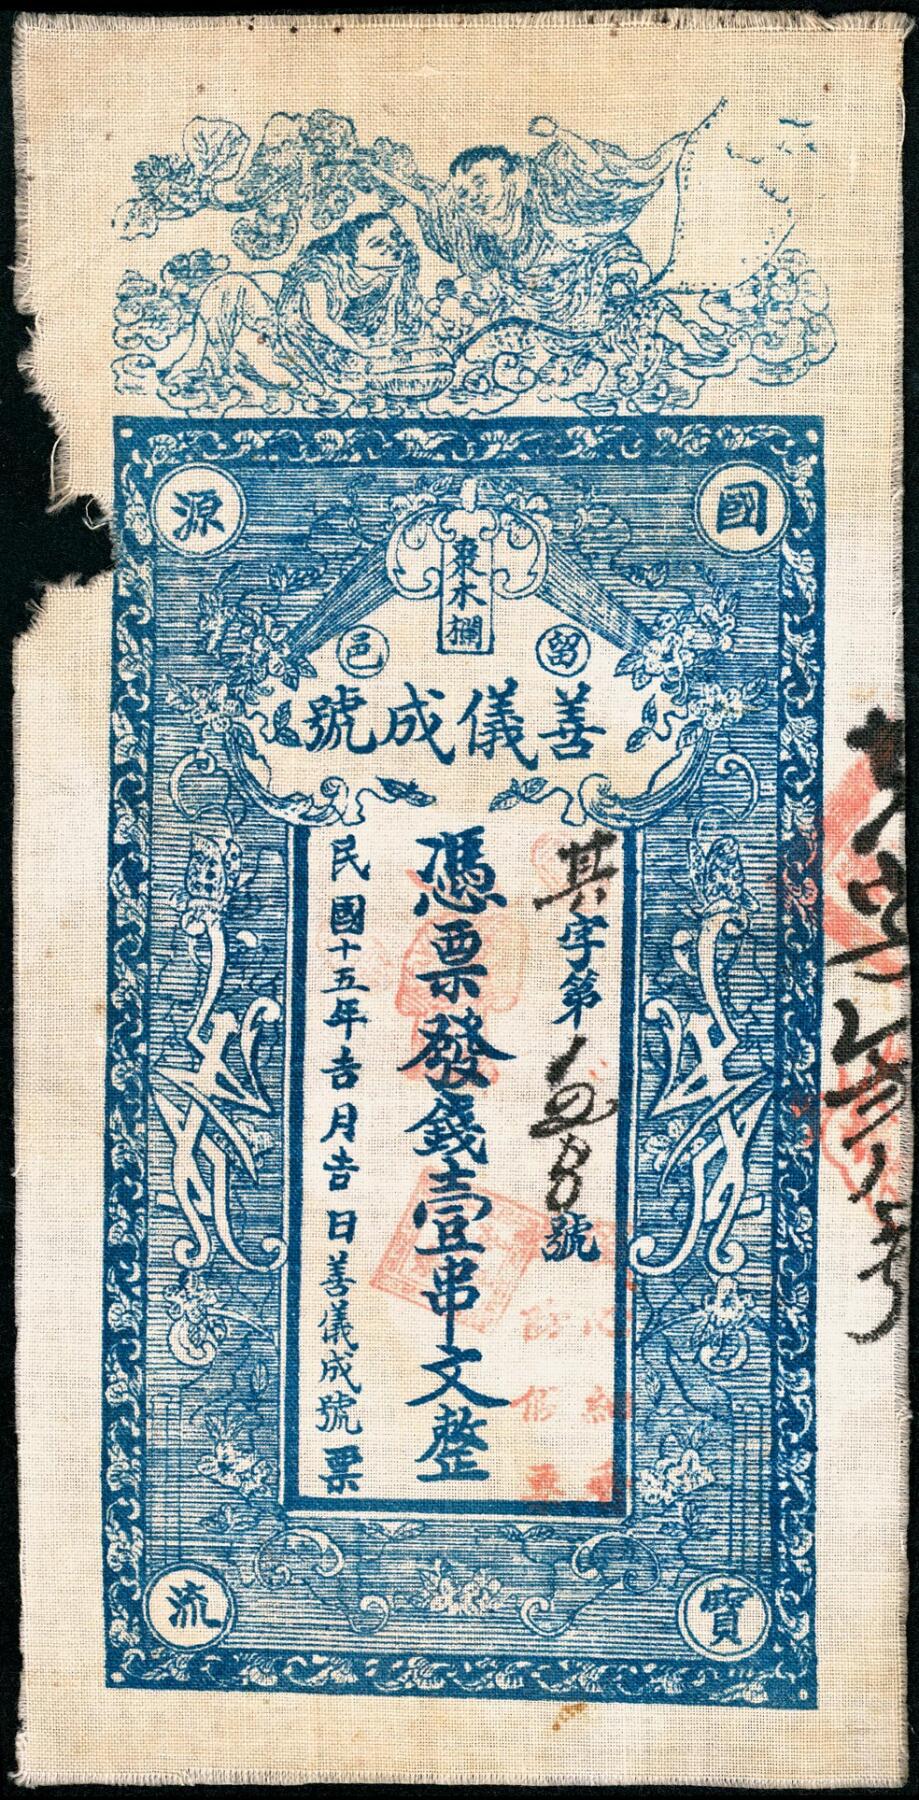 國寶源流
東木擱
留邑
善儀成號
其字第
號
憑票發錢壹串文整
民國十五年吉月吉日善儀成號票